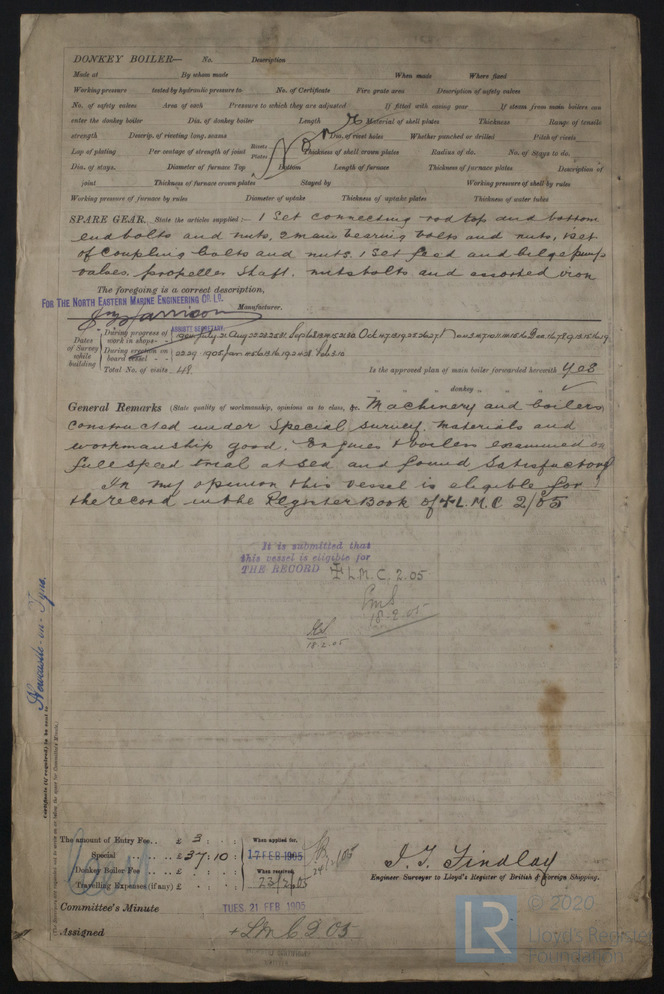 DONKEY BOILER— No. Description
Made at By whom made When made Where fixed
Working pressure tested by hydraulic pressure to No. of Certificate Fire grate area Description of safety valves
No. of safety valves Area of each Pressure to which they are adjusted If fitted with easing gear If steam from main boilers can
enter the donkey boiler Dia. of donkey boiler Length Material of shell plates Thickness Range of tensile
strength Descrip. of riveting long. seams Dia. of rivet holes Whether punched or drilled Pitch of rivets
Lap of plating Per centage of strength of joint Rivets Plates Thickness of shell crown plates Radius of do. No. of Stays to do.
Dia. of stays. Diameter of furnace Top Bottom Length of furnace Thickness of furnace plates Description of
joint Thickness of furnace crown plates Stayed by Working pressure of shell by rules
Working pressure of furnace by rules Diameter of uptake Thickness of uptake plates Thickness of water tubes
SPARE GEAR. State the articles supplied:— 1 Set connecting rod top and bottom
end bolts and nuts, 2 main bearing bolts and nuts, 1 set
of coupling bolts and nuts. 1 Set feed and bilge pump
valves, propeller shaft. nuts bolts and assorted iron
The foregoing is a correct description,
FOR THE NORTH EASTERN MARINE ENGINEERING CO. LD.
Harrison Manufacturer.
SECRETARY
Dates of Survey while building
During progress of work in shops--
During erection on board vessel ---
Total No. of visits 48
Is the approved plan of main boiler forwarded herewith Yes
" " " donkey " " "
General Remarks (State quality of workmanship, opinions as to class, &c. Machinery and boilers
constructed under Special survey. materials and
workmanship good. Engines & boilers examined on
full speed trial at sea and found satisfactory
In my opinion this vessel is eligible for
the record in the Register Book of + L.M.C 2/05
It is submitted that
this vessel is eligible for
THE RECORD + L.M.C. 2.05
18-2-05
18.2.05
Certificate (if required) to be sent to Newcastle-on-Tyne.
The amount of Entry Fee.. £ 3 : : When applied for,
Special .. .. £ 37 : 10 : 17 FEB 1905
Donkey Boiler Fee .. .. £ : : When received,
Travelling Expenses (if any) £ : : 23/2/05
J. T. Findlay
Engineer Surveyor to Lloyd's Register of British & Foreign Shipping.
Committee's Minute TUES. 21 FEB 1905
Assigned + LMC 2 05
© 2020
Lloyd's Register
Foundation
LR